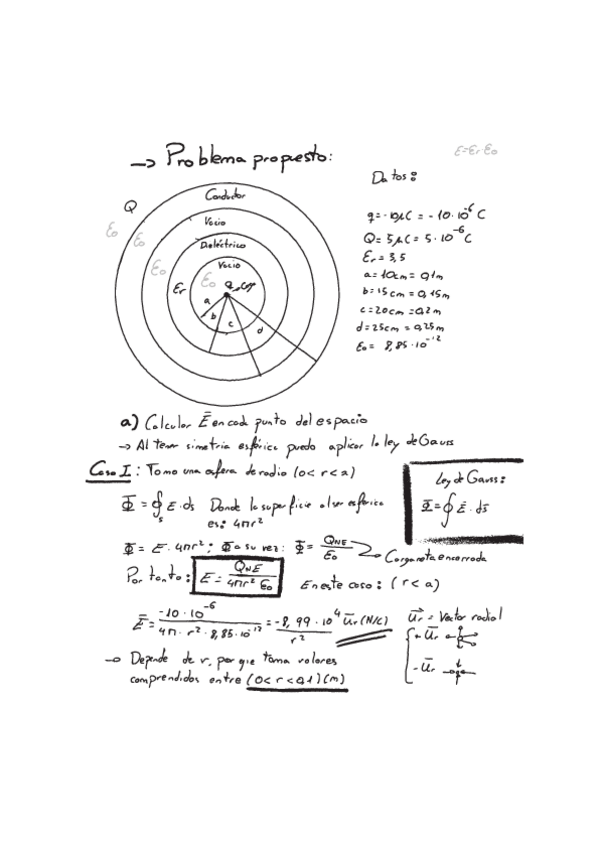 → Problema propuesto:
ε=εr ε0
Datos:
q=-10μC = -10·10⁻⁶ C
Q= 5μC = 5·10⁻⁶ C
εr = 3,5
a=10cm = 0,1m
b=15cm = 0,15m
c=20cm = 0,2m
d=25cm = 0,25m
ε0= 8,85·10⁻¹²
Q
Conductor
Vacío
Dieléctrico
Vacío
ε0
ε0
ε0
ε0
εr
a
b
c
d
a) Calcular E̅ en cada punto del espacio
→ Al tener simetría esférica puedo aplicar la ley de Gauss
Caso I: Tomo una esfera de radio (0<r<a)
Ley de Gauss:
Φ=∮ E̅·ds̅
Φ = ∮s E·ds Donde la superficie al ser esférica
es: 4πr²
Φ = E·4πr²; Φ a su vez: Φ = QNE/ε0 → Carga neta encerrada
Por tanto: E = QNE/4πr² ε0 En este caso: (r<a)
E̅ = -10·10⁻⁶/4π·r²·8,85·10⁻¹² = -8,99·10⁴/r² u̅r (N/C)
u⃗r = Vector radial
+u̅r
-u̅r
→ Depende de r, porque toma valores
comprendidos entre (0<r<0,1)(m)